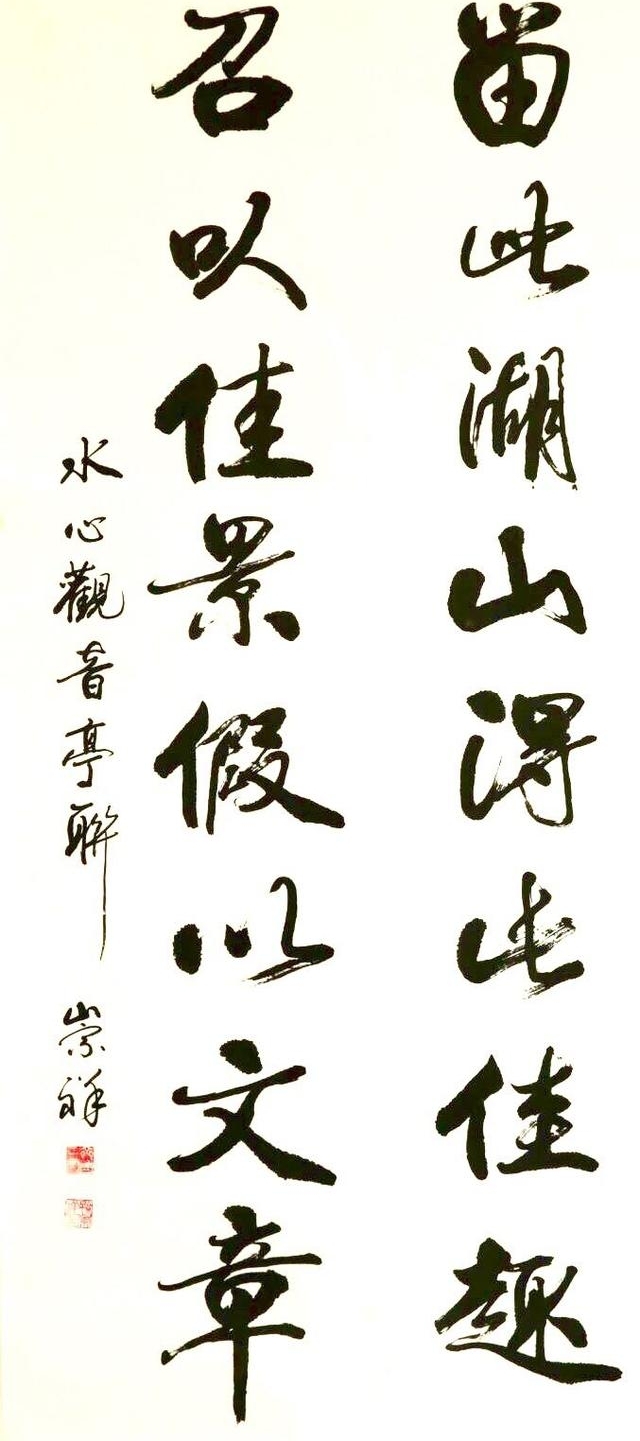 留此湖山得此佳趣
召以佳景假以文章
水心觀音亭聯 崇祥